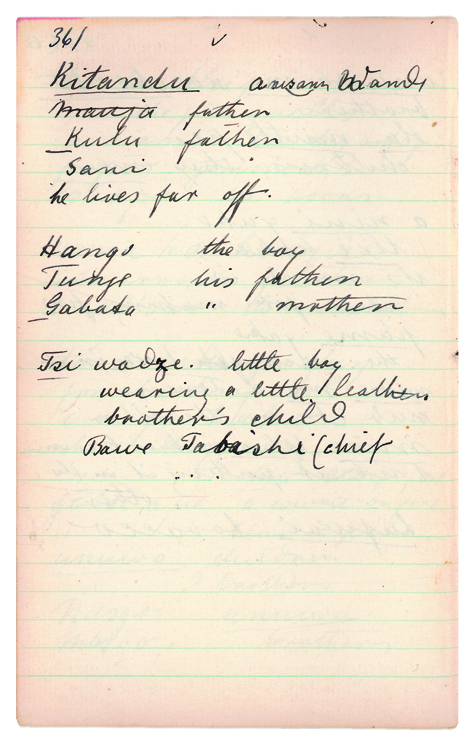 361
Kitandu
Manja father
Kulu father
Sani
he lives far off.
Hango the boy
Tunge his father
Gabata " mother
Tsi wadze. little boy
wearing a little leather
brother's child
Bawe Tabashi (chief